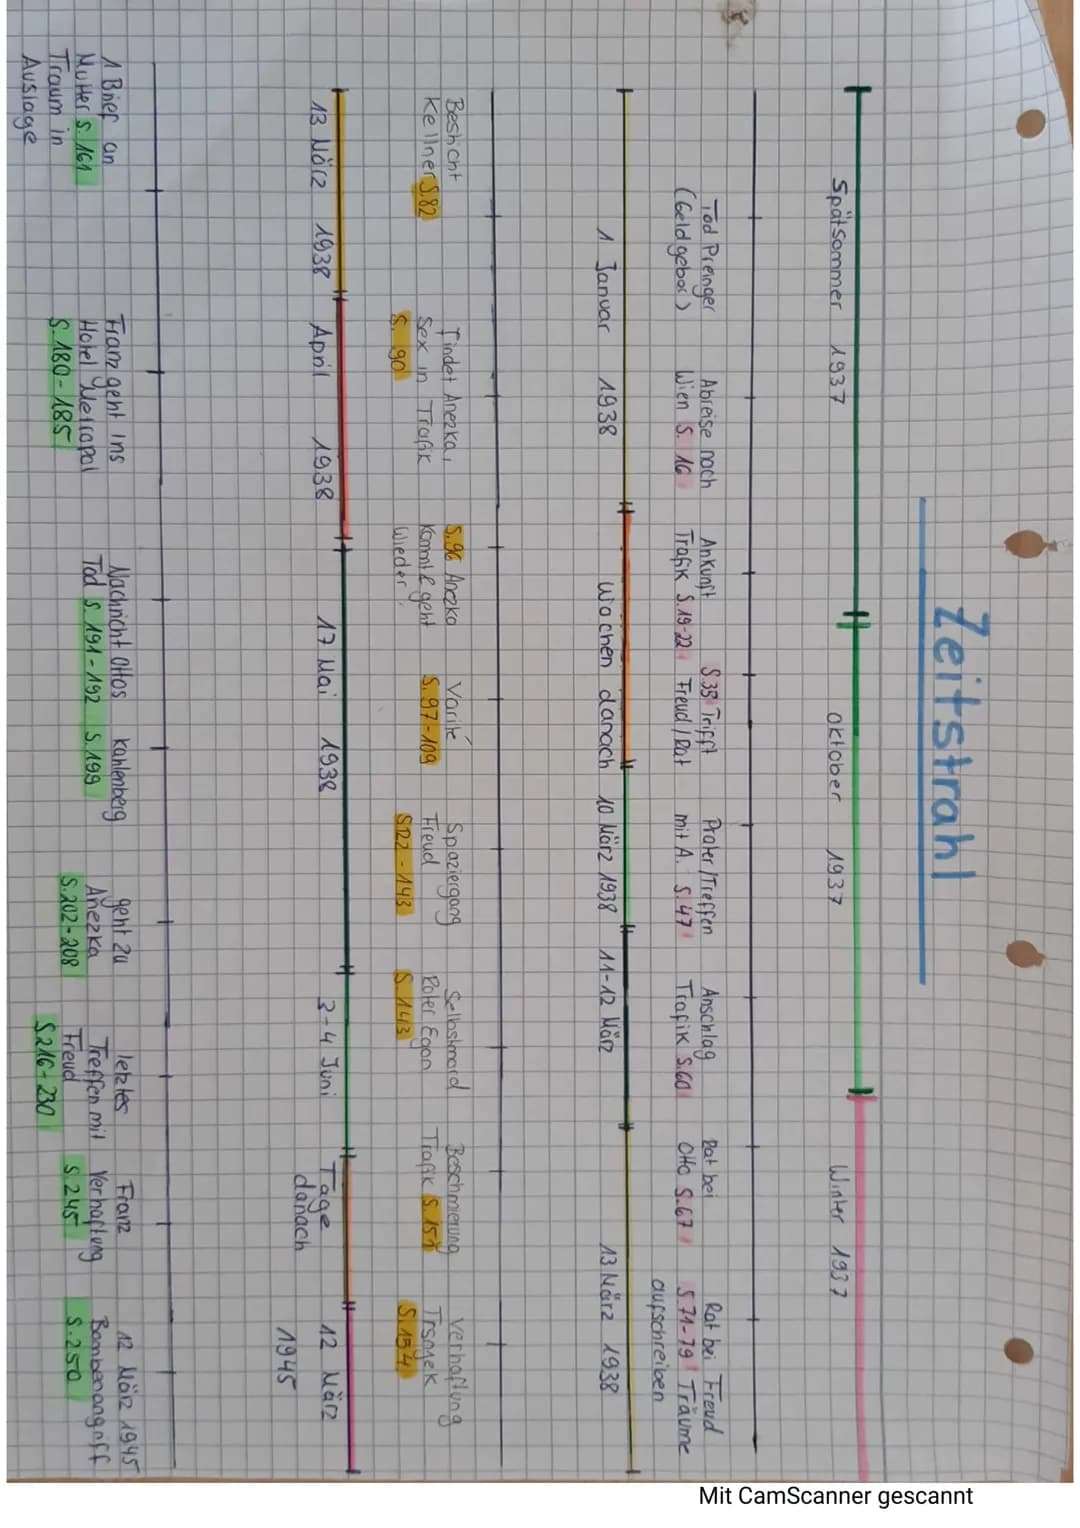 Zeitstrahl
Spätsommer 1937
Oktober 1937
Winter 1937
Tod Preinger
(Geldgeber)
Abreise nach
Wien S. 16
Ankunft
Trafik S.19-22
S.35 Trifft
Freud/Rat
Prater/Treffen
mit A. S.47
Anschlag
Trafik S.60
Rat bei
Otto S.67
Rat bei Freud
S.71-79 Träume
aufschreiben
1 Januar 1938
Wochen danach
10 März 1938
11-12 März
13 März 1938
Besticht
Kellner S.82
Findet Anezka,
Sex in Trafik
S. 90
S.96 Anezka
kommt & geht
wieder
Varité
S.97-109
Spaziergang
Freud
S.122-143
Selbstmord
Roter Egon
S.143
Beschmierung
Trafik S.151
Verhaftung
Trsnjek
S.154
13 März 1938
April 1938
17 Mai 1938
3-4 Juni
Tage
danach
12 März
1945
1 Brief an
Mutter S.161
Traum in
Auslage
Franz geht Ins
Hotel Metropol
S.180-185
Nachricht Ottos
Tod S.191-192
kahlenberg
S.199
geht zu
Anezka
S.202-208
letztes
Treffen mit
Freud
S.216-230
Franz
Verhaftung
S.245
12 März 1945
Bombenangriff
S.250
Mit CamScanner gescannt